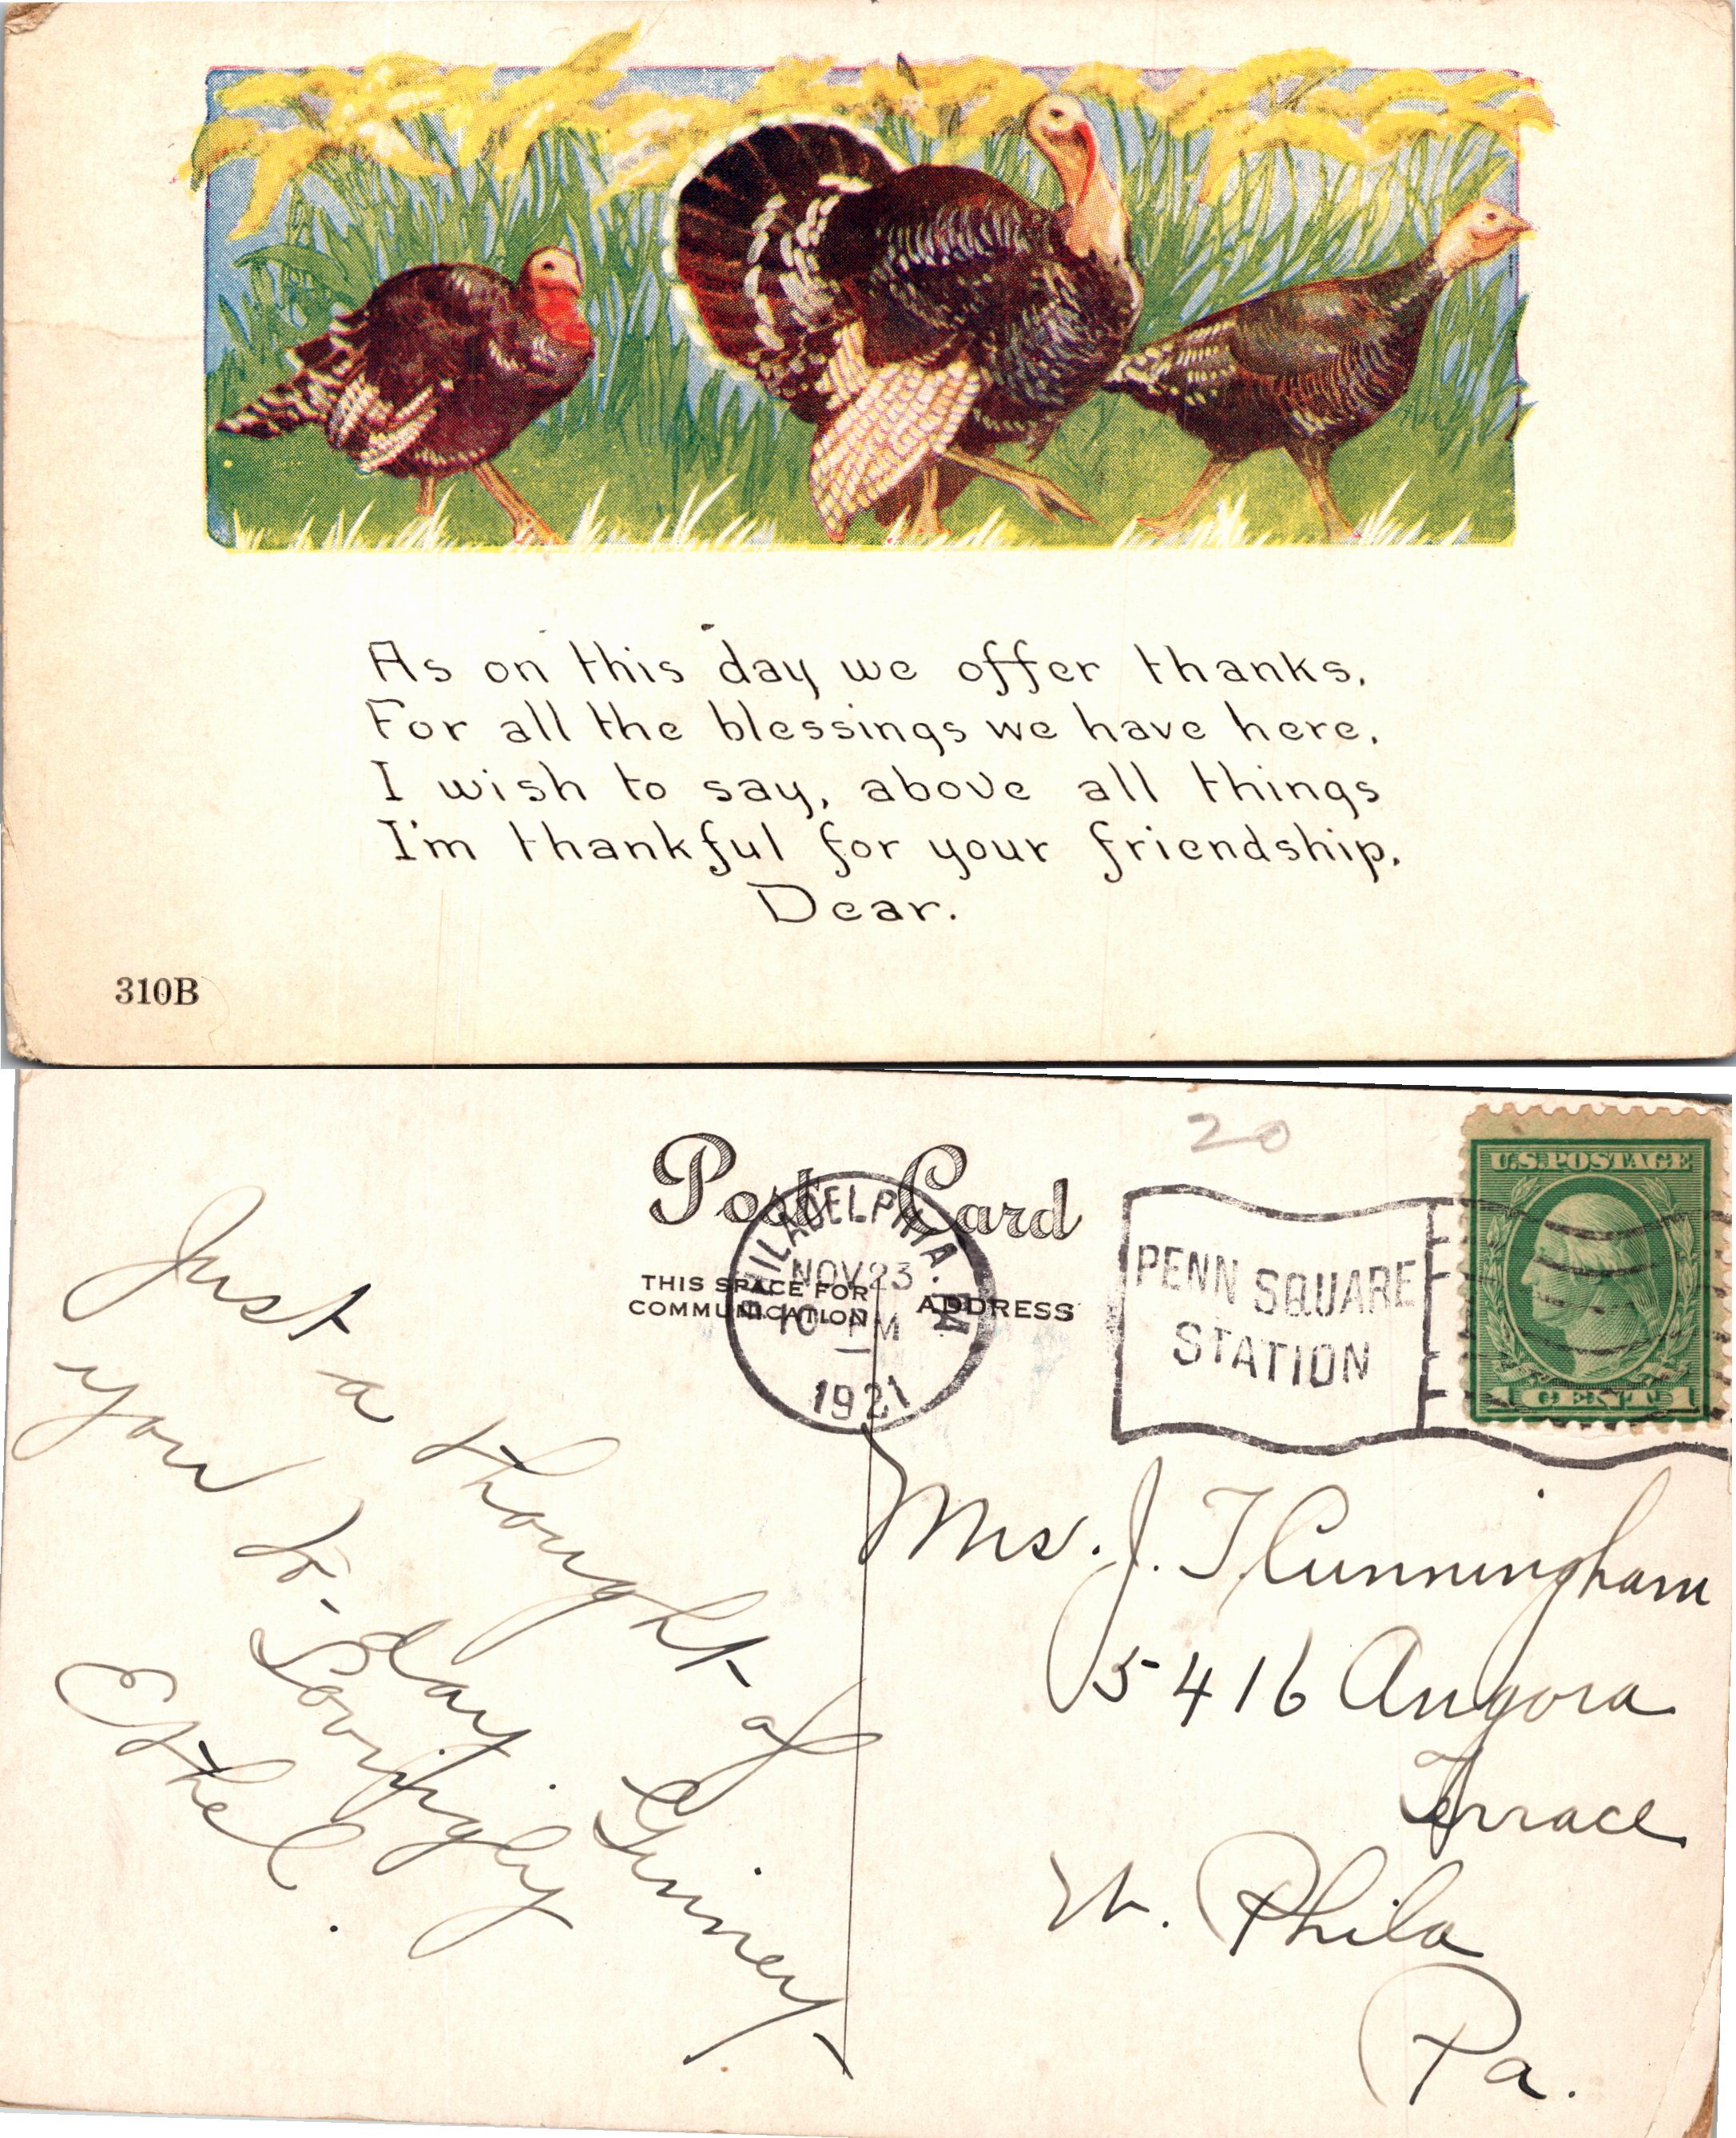 As on this day we offer thanks,
For all the blessings we have here,
I wish to say, above all things
I'm thankful for your friendship,
Dear.
310B
20
Post Card
THIS SPACE FOR
COMMUNICATION
ADDRESS
PHILADELPHIA. PA
NOV 23
10 PM
1921
PENN SQUARE
STATION
U.S. POSTAGE
1 CENT 1
Just a thought of
you to-day. Ginney
Lovingly
Ethel.
Mrs. J. T. Cunningham
5416 Angora
Terrace
W. Phila
Pa.